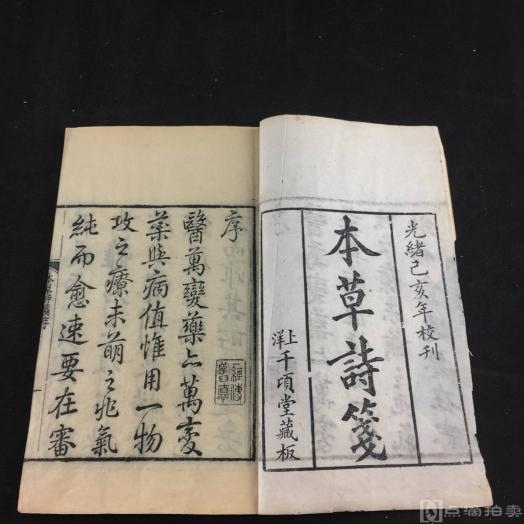 光緒己亥年校刊
本草詩箋
上洋千頃堂藏板
序
醫萬變藥亦萬變
藥與病值惟用一物
攻之療未萌之兆氣
純而愈速要在審
点滴拍卖